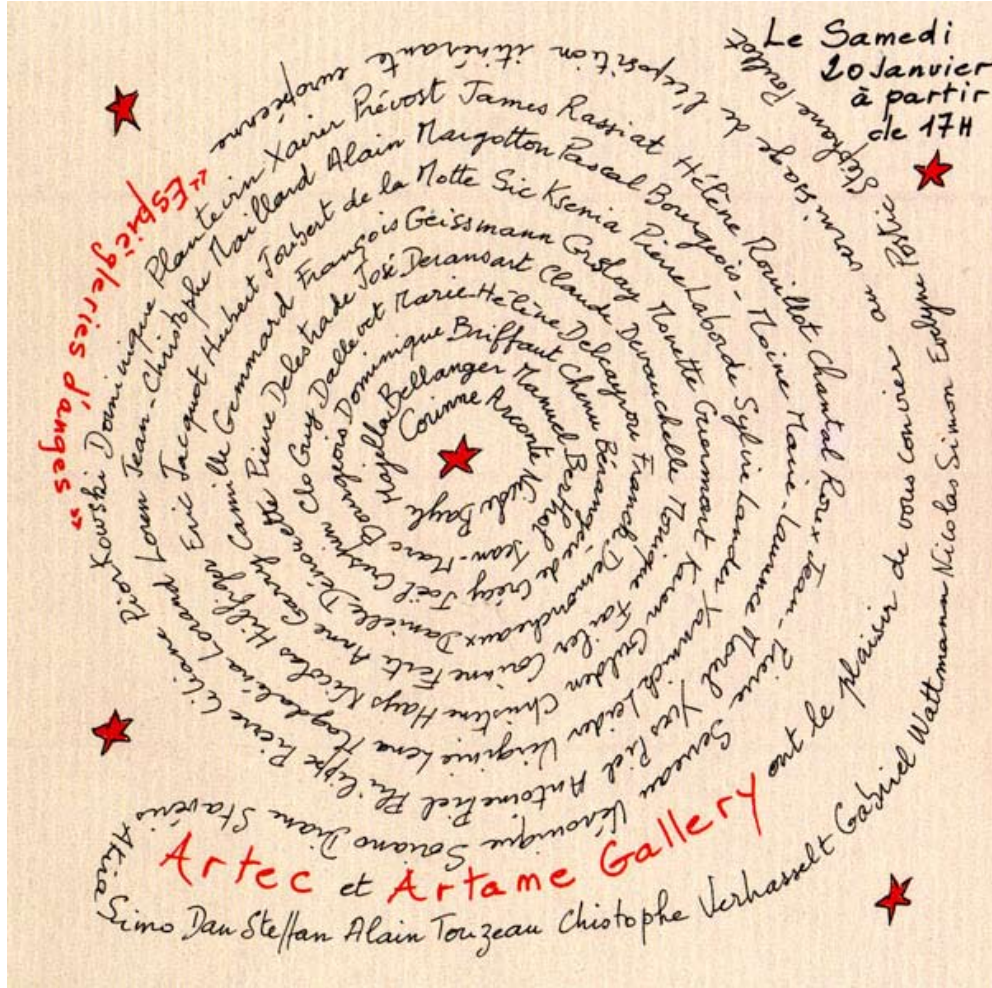 Le Samedi
20 Janvier
à partir
de 17H
Artec et Artame Gallery
ont le plaisir de vous convier au vernissage de l'exposition itinérante européenne
"Espiègleries d'anges"
Corinne Arconte Neide Bayle
Hajella Bellanger Manuel Berthol Jean-Marc Bourgeois
Dominique Briffaut Chenu Bérangère de Crécy Joël Crespin Clo
Guy Dallevet Marie-Hélène Delcayrou Franck Demoncheaux Danielle Dénouette
Pierre Delestrade José Deransart Claude Devauchelle Monique Failer Corinne Ferti Anne Garry
Camille Gemmard François Geissmann Monette Guermont Karen Gulden Christine Hays Nicolas Hilfiger
Eric Jacquot Hubert Joubert de la Motte Sic Ksenia Pierre Laborde Sylvie Lander Yannick Leider Virginie Lena Magdaléna Lorand
Loren Jean-Christophe Maillard Alain Margotton Pascal Bourgeois-Moine Marie-Laurence Morel Yves Piel Antoine Piel Philippe Pierre Liliane Piotrkowski
Dominique Planterin Xavier Prévost James Rassiat Hélène Rouillot Chantal Roux Jean-Pierre Serveau Véronique Soriano Diane Stavéris Akira
Simo Dan Steffan Alain Touzeau Chistophe Verhasselt Gabriel Wattmann Nicolas Simon Evelyne Postic Stéphane Poullot